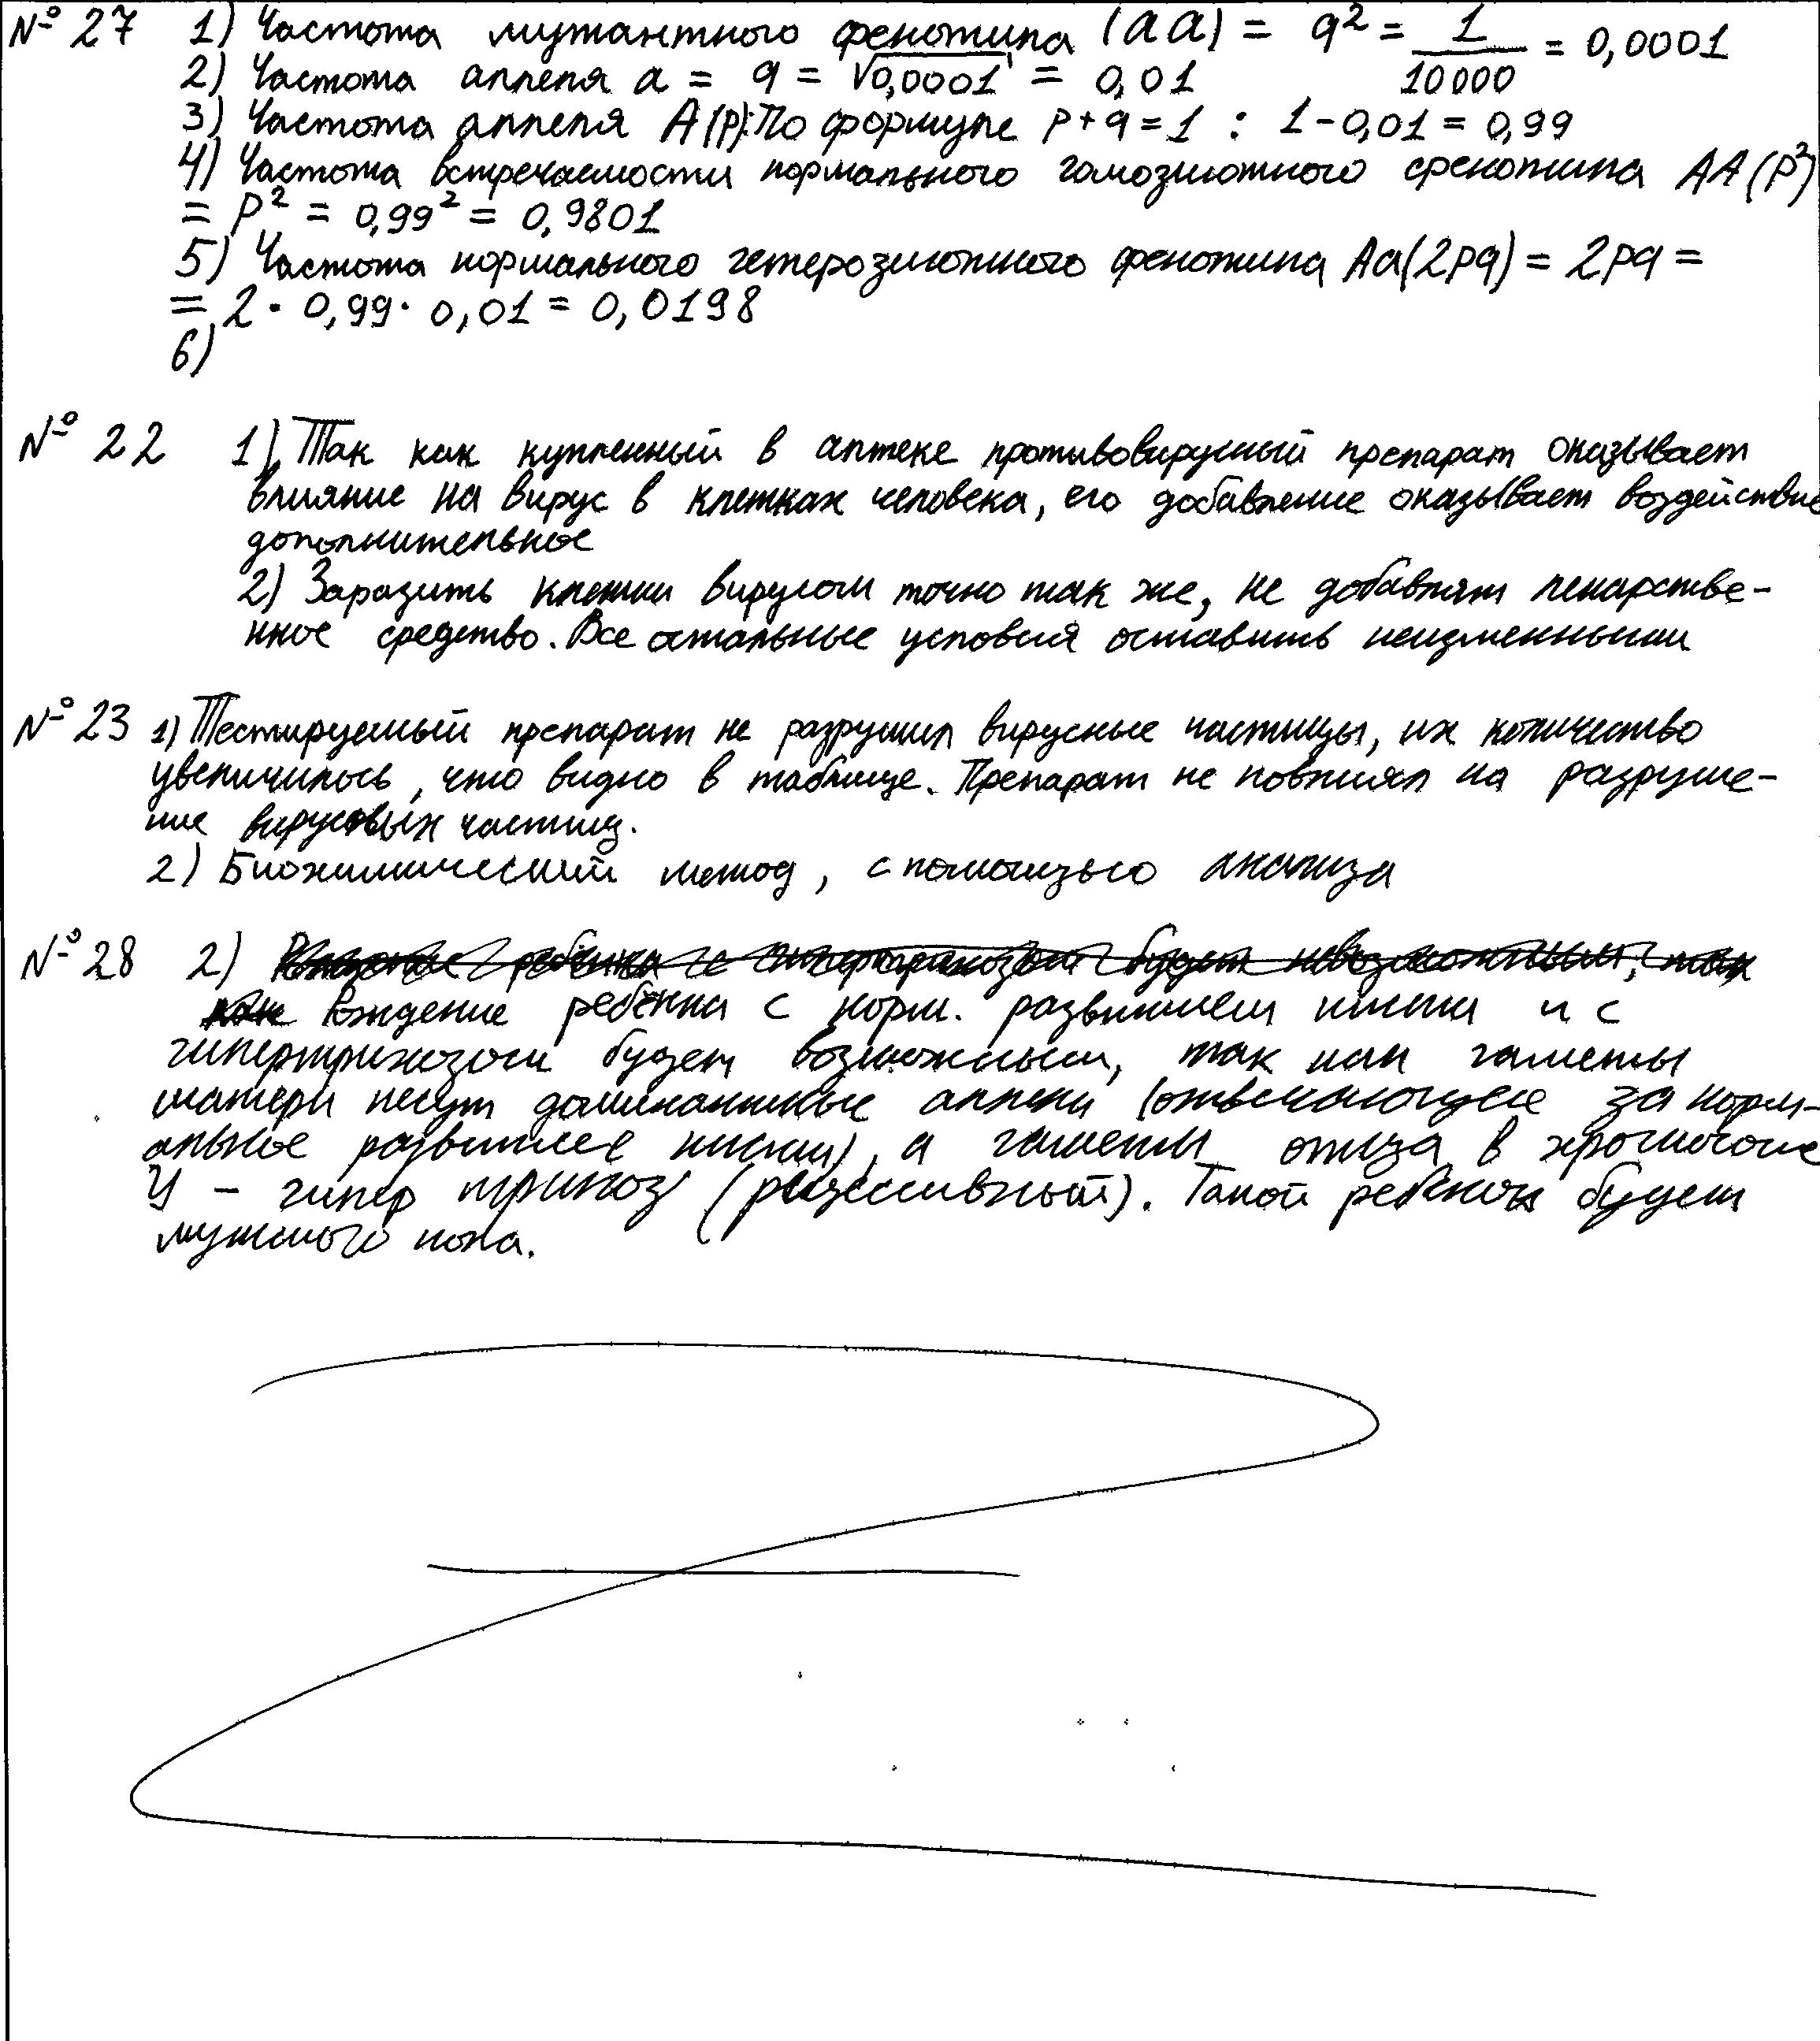 № 27 1) Частота мутантного фенотипа (aa) = q² = 1/10000 = 0,0001
2) Частота аллеля a = q = √0,0001 = 0,01
3) Частота аллеля A(p): По формуле p+q=1 : 1-0,01=0,99
4) Частота встречаемости нормального гомозиготного фенотипа AA(p²)
= p² = 0,99² = 0,9801
5) Частота нормального гетерозиготного фенотипа Aa(2pq) = 2pq =
= 2 · 0,99 · 0,01 = 0,0198
6)
№ 22 1) Так как купленный в аптеке противовирусный препарат оказывает
влияние на вирус в клетках человека, его добавление оказывает воздействие
дополнительное
2) Заразить клетки вирусом точно так же, не добавляя лекарстве-
нное средство. Все остальные условия оставить неизменными
№ 23 1) Тестируемый препарат не разрушил вирусные частицы, их количество
увеличилось, что видно в таблице. Препарат не повлиял на разруше-
ние вирусовых частиц.
2) Биохимический метод, с помощью анализа
№ 28 2)
Рождение ребёнка с норм. развитием кисти и с
гипертрихозом будет возможным, так как гаметы
матери несут доминантные аллели (отвечающее за норм-
альное развитие кисти), а гаметы отца в хромосоме
У - гипер трихоз (рецессивный). Такой ребёнок будет
мужского пола.